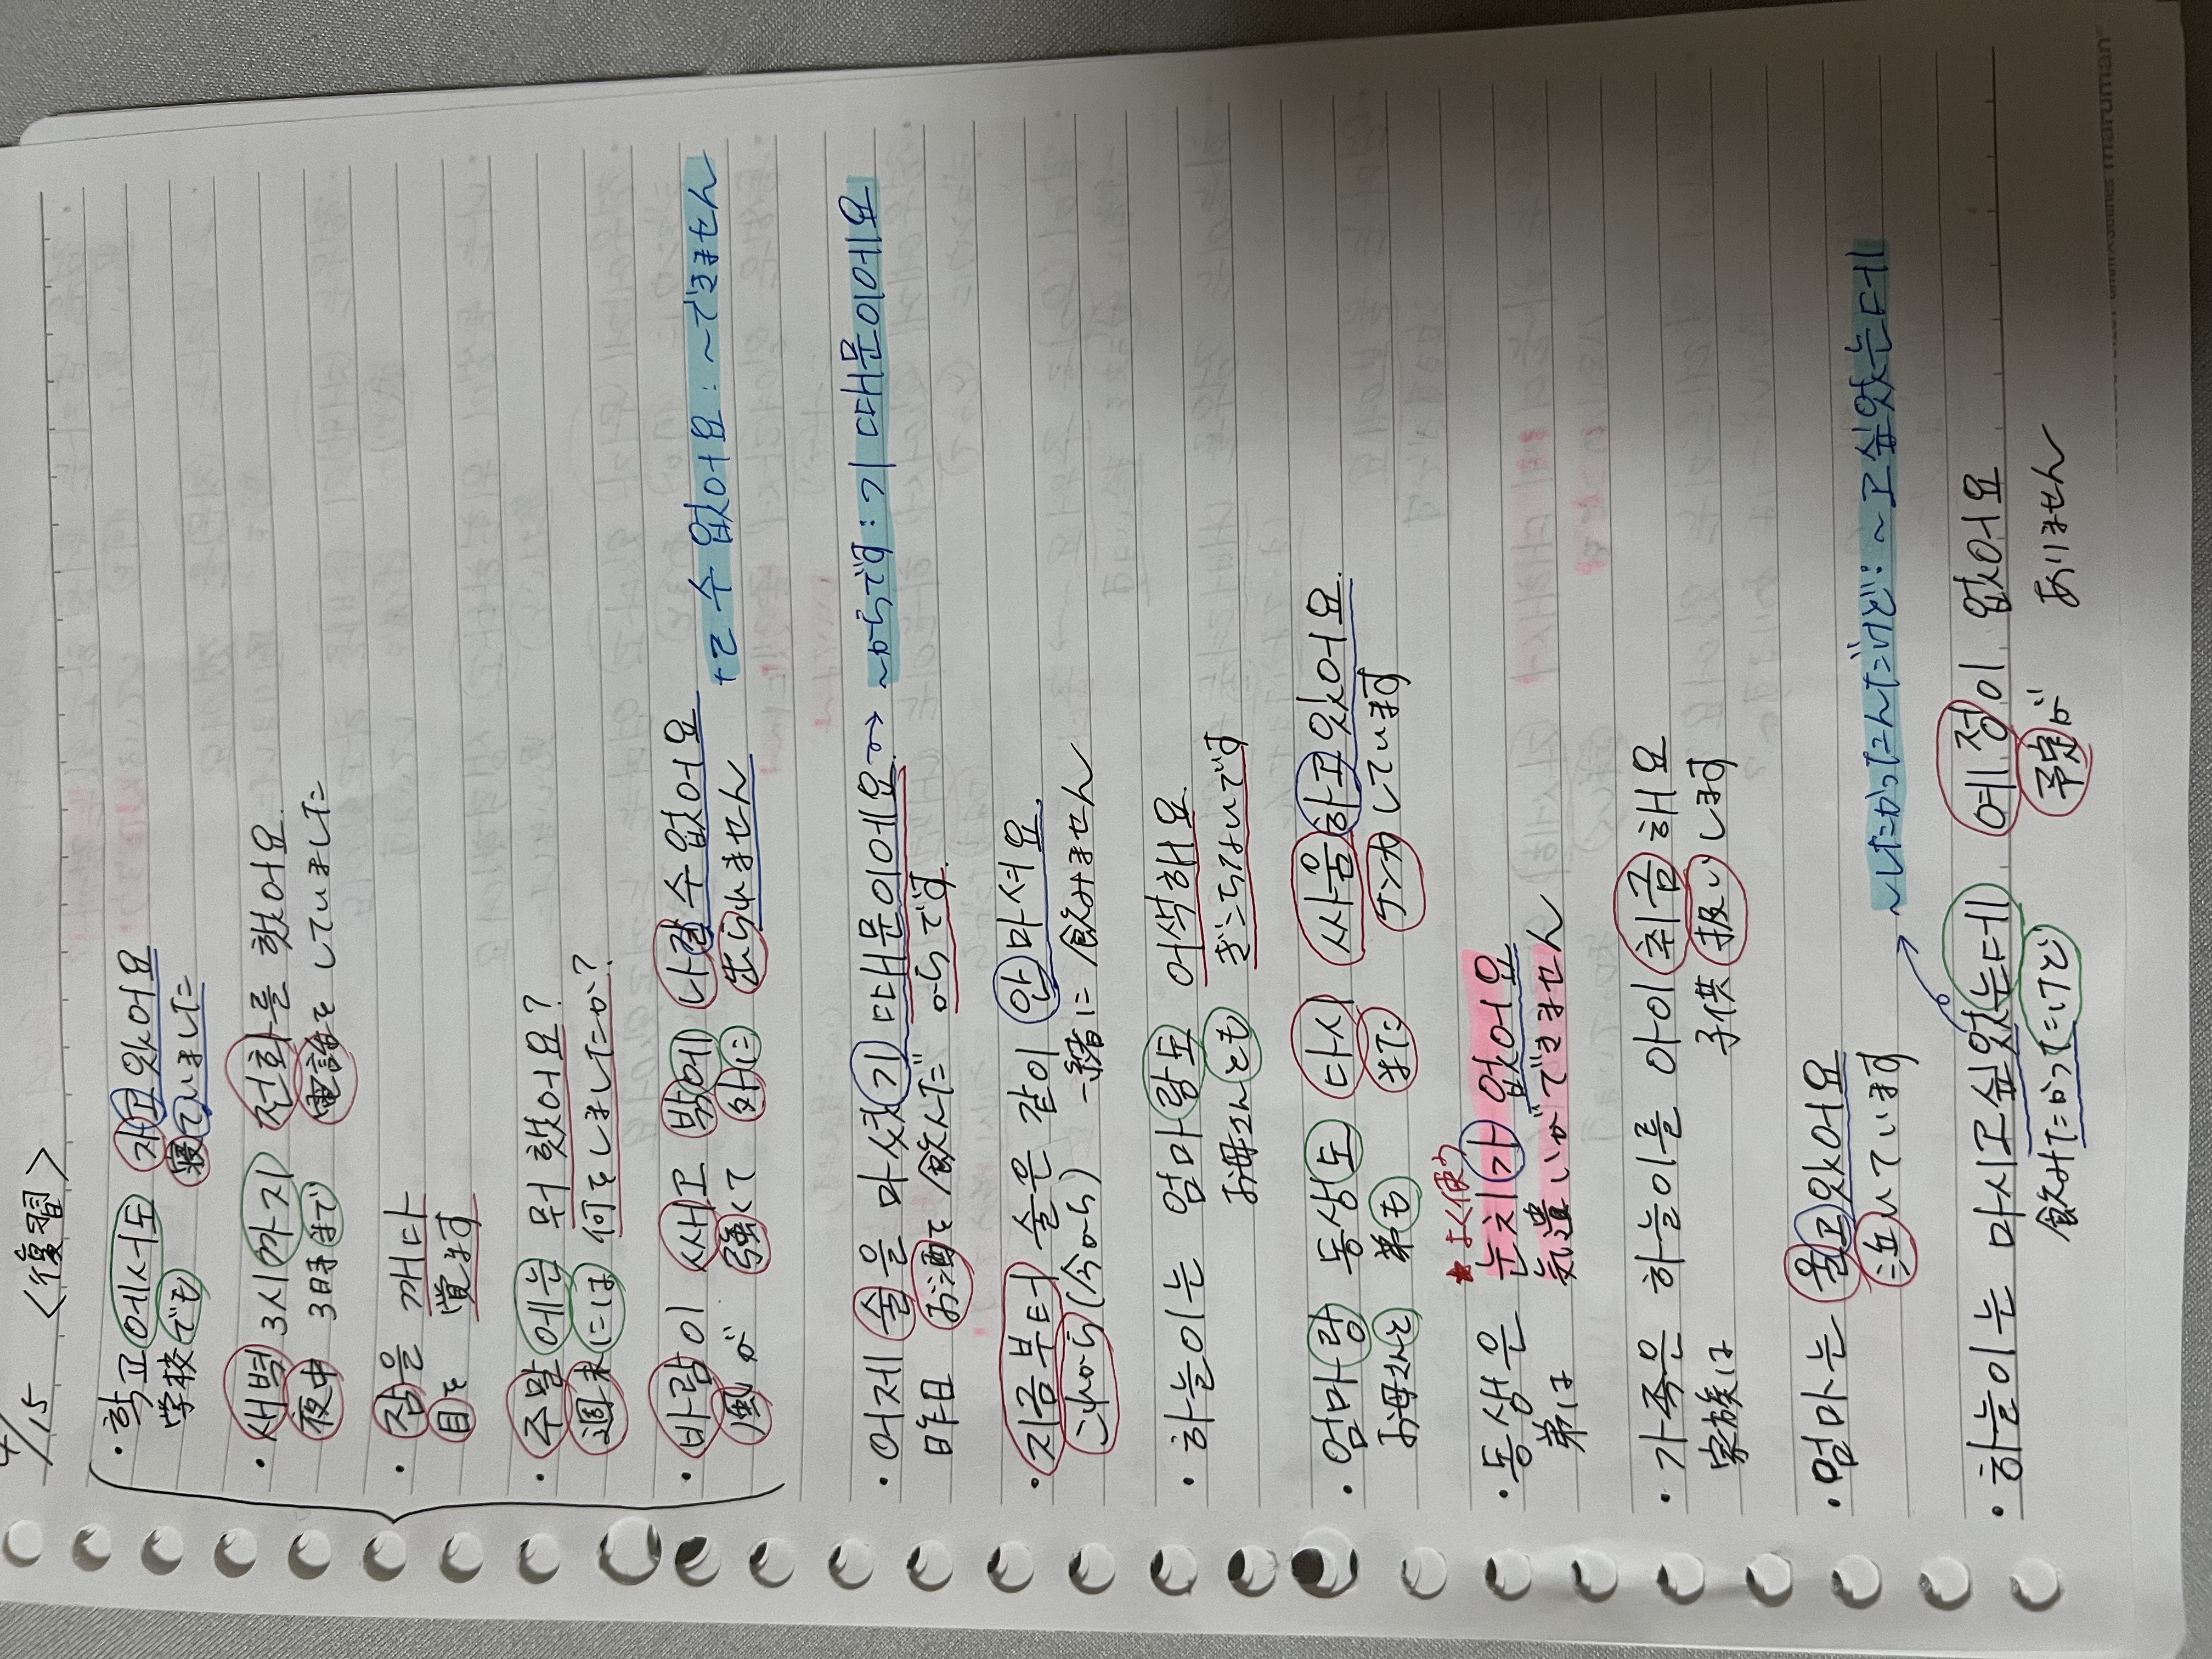 4/15 <復習>
・학교에서도 자고있어요
学校でも 寝ていました
・새벽 3시까지 전화를 했어요.
夜中 3時まで 電話をしていました
・잠을 깨다
目を 覚ます
・주말에는 뭐 했어요?
週末には 何をしましたか?
・바람이 쎄고 밖에 나갈 수 없어요
風が 強くて 外に 出られません
+ㄹ 수 없어요:〜できません
・어제 술을 마셨기 때문이에요. → 〜からです:기 때문이에요
昨日 お酒を 飲んだ からです.
・지금부터 술은 같이 안 마셔요.
これから(今から) 一緒に 飲みません
・하늘이는 엄마랑도 어색해요.
お母さんとも ぎこちないです
・엄마랑 동상도 다시 싸움하고있어요.
お母さんと 弟も また ケンカしています
★よく使う
・동생은 눈치가 없어요
弟は 気遣いができません
・가족은 하늘이를 아이 취급해요
家族は 子供 扱いします
・엄마는 울고있어요
泣いています
→ 〜したかったんだけど:〜고싶었는데
・하늘이는 마시고싶었는데 예정이 없어요
飲みたかったけど 予定が ありません